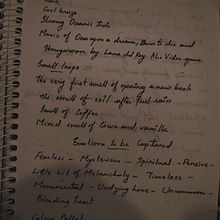 Cool breeze
Strong Oceanic Tide
Music of Once upon a dream, Born to die and
Honeymoon by Lana del Rey. Also Video game
Smell-
The very first smell of opening a new book
The smell of soil after first rain
Smell of Coffee
Mixed smell of Cocoa and vanilla
Emotions to be Captured
Fearless - Mysterious - Spiritual - Pensive -
Little bit of Melancholy - Timeless -
Monumental - Undying love - Uncommon -
Bleeding heart